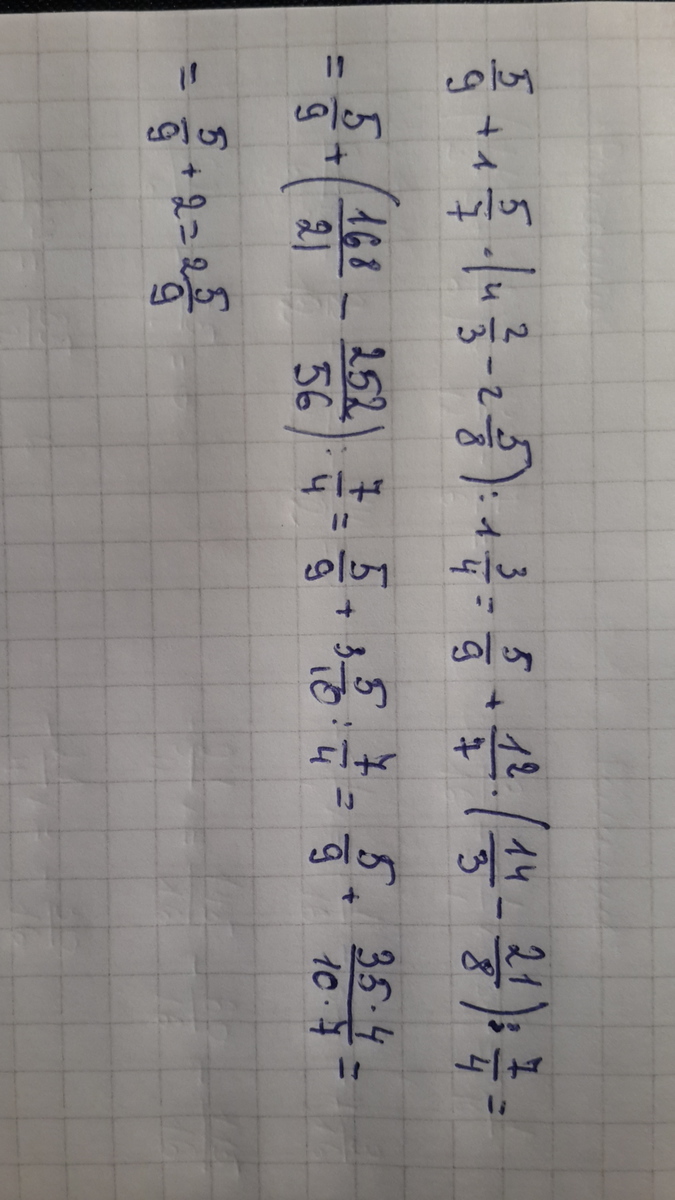 5/9 + 1 5/7 · (4 2/3 - 2 5/8) : 1 3/4 = 5/9 + 12/7 · (14/3 - 21/8) : 7/4 =
= 5/9 + (168/21 - 252/56) : 7/4 = 5/9 + 3 5/10 : 7/4 = 5/9 + 35·4/10·7 =
= 5/9 + 2 = 2 5/9